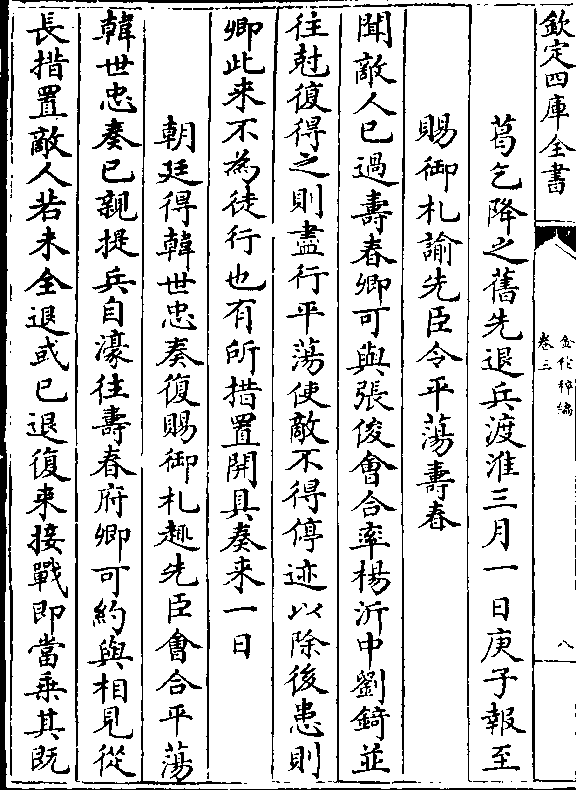 欽定四庫全書
金佗稡編
卷三
八
葛乞降之舊先退兵渡淮三月一日庚子報至
賜御札諭先臣令平蕩壽春
聞敵人已過壽春卿可與張俊會合率楊沂中劉錡並
往尅復得之則盡行平蕩使敵不得停迹以除後患則
卿此来不為徒行也有所措置開具奏来一日
朝廷得韓世忠奏復賜御札趣先臣會合平蕩
韓世忠奏已親提兵自濠往壽春府卿可約與相見從
長措置敵人若未全退或已退復来接戰即當乗其既